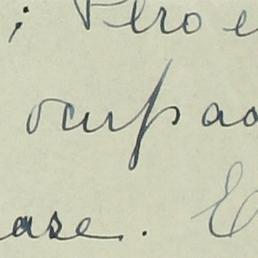 ; Pero e
ocupad
ase. E